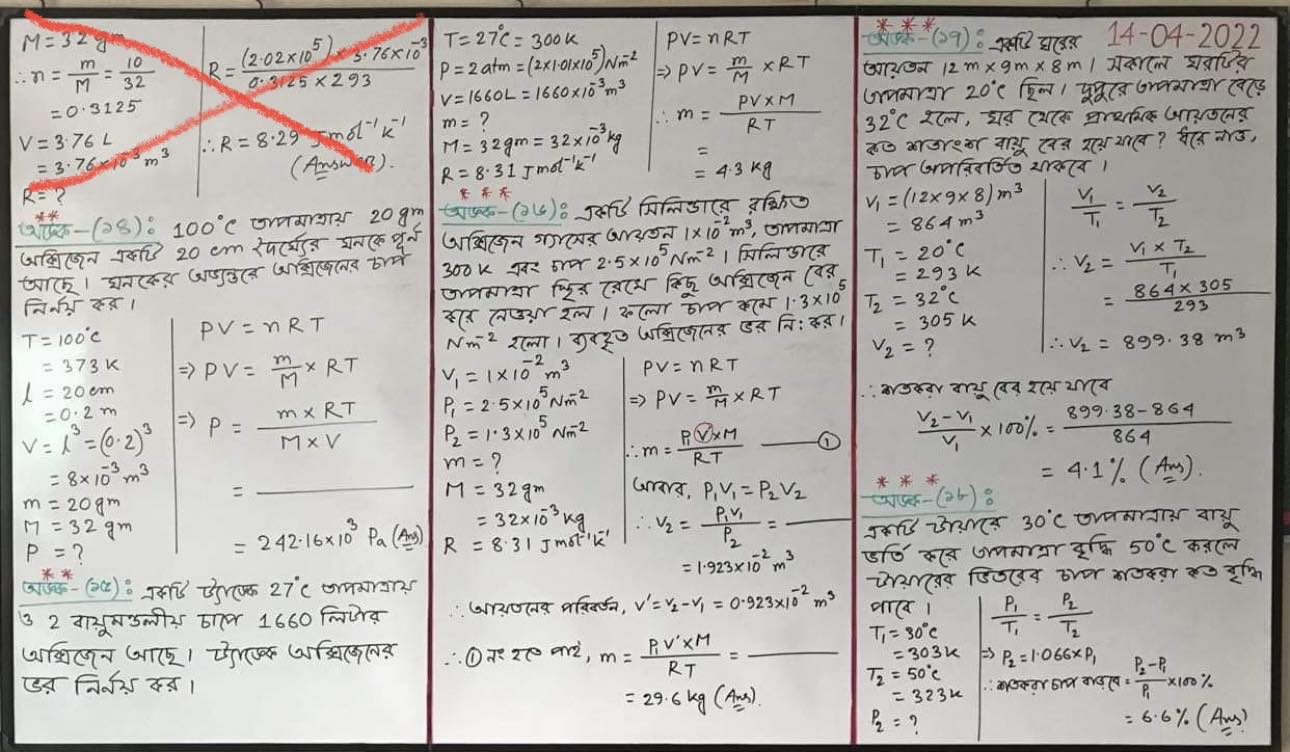 M = 32 gm
∴ n = m/M = 10/32
= 0.3125
V = 3.76 L
= 3.76×10⁻³ m³
R = ?
R = (2.02×10⁵) × 3.76×10⁻³ / 0.3125 × 293
∴ R = 8.29 Jmol⁻¹k⁻¹
(Answer).
**
অঙ্ক-(১৪): 100°C তাপমাত্রায় 20 gm
অক্সিজেন একটি 20 cm দৈর্ঘ্যের ঘনকে পূর্ন
আছে। ঘনকের অভ্যন্তরে অক্সিজেনের চাপ
নির্নয় কর।
T = 100°C
= 373 K
l = 20 cm
= 0.2 m
V = l³ = (0.2)³
= 8×10⁻³ m³
m = 20 gm
M = 32 gm
P = ?
PV = nRT
⇒ PV = m/M × RT
⇒ P = m × RT / M × V
=
= 242.16×10³ Pa (Ans)
**
অঙ্ক-(১৫): একটি ট্যাংকে 27°C তাপমাত্রায়
ও 2 বায়ুমন্ডলীয় চাপে 1660 লিটার
অক্সিজেন আছে। ট্যাংকে অক্সিজেনের
ভর নির্নয় কর।
T = 27°C = 300 K
P = 2 atm = (2×1.01×10⁵) Nm⁻²
V = 1660 L = 1660×10⁻³ m³
m = ?
M = 32 gm = 32×10⁻³ kg
R = 8.31 Jmol⁻¹k⁻¹
PV = nRT
⇒ PV = m/M × RT
∴ m = PV×M / RT
=
= 4.3 kg
***
অঙ্ক-(১৬): একটি সিলিন্ডারে রক্ষিত
অক্সিজেন গ্যাসের আয়তন 1×10⁻² m³, তাপমাত্রা
300 K এবং চাপ 2.5×10⁵ Nm⁻²। সিলিন্ডারে
তাপমাত্রা স্থির রেখে কিছু অক্সিজেন বের
করে নেওয়া হল। ফলে চাপ কমে 1.3×10⁵
Nm⁻² হলো। ব্যবহৃত অক্সিজেনের ভর নি: কর।
V₁ = 1×10⁻² m³
P₁ = 2.5×10⁵ Nm⁻²
P₂ = 1.3×10⁵ Nm⁻²
m = ?
M = 32 gm
= 32×10⁻³ kg
R = 8.31 Jmol⁻¹k⁻¹
PV = nRT
⇒ PV = m/M × RT
∴ m = P₁V×M / RT — ①
আবার, P₁V₁ = P₂V₂
∴ V₂ = P₁V₁ / P₂ =
= 1.923×10⁻² m³
∴ আয়তনের পরিবর্তন, V' = V₂-V₁ = 0.923×10⁻² m³
∴ ① নং হতে পাই, m = P₁V'×M / RT =
= 29.6 kg (Ans).
***
14-04-2022
অঙ্ক-(১৭): একটি ঘরের
আয়তন 12 m × 9 m × 8 m। সকালে ঘরটির
তাপমাত্রা 20°C ছিল। দুপুরে তাপমাত্রা বেড়ে
32°C হলে, ঘর থেকে প্রাথমিক আয়তনের
কত শতাংশ বায়ু বের হয়ে যাবে? ধরে নাও,
চাপ অপরিবর্তিত থাকবে।
V₁ = (12×9×8) m³
= 864 m³
T₁ = 20°C
= 293 K
T₂ = 32°C
= 305 K
V₂ = ?
V₁/T₁ = V₂/T₂
∴ V₂ = V₁ × T₂ / T₁
= 864 × 305 / 293
∴ V₂ = 899.38 m³
∴ শতকরা বায়ু বের হয়ে যাবে
V₂-V₁ / V₁ × 100% = 899.38-864 / 864
= 4.1% (Ans).
***
অঙ্ক-(১৮):
একটি টায়ারে 30°C তাপমাত্রায় বায়ু
ভর্তি করে তাপমাত্রা বৃদ্ধি 50°C করলে
টায়ারের ভিতরের চাপ শতকরা কত বৃদ্ধি
পাবে।
T₁ = 30°C
= 303K
T₂ = 50°C
= 323K
P₂ = ?
P₁/T₁ = P₂/T₂
⇒ P₂ = 1.066×P₁
∴ শতকরা চাপ বাড়বে = P₂-P₁ / P₁ × 100%
= 6.6% (Ans)